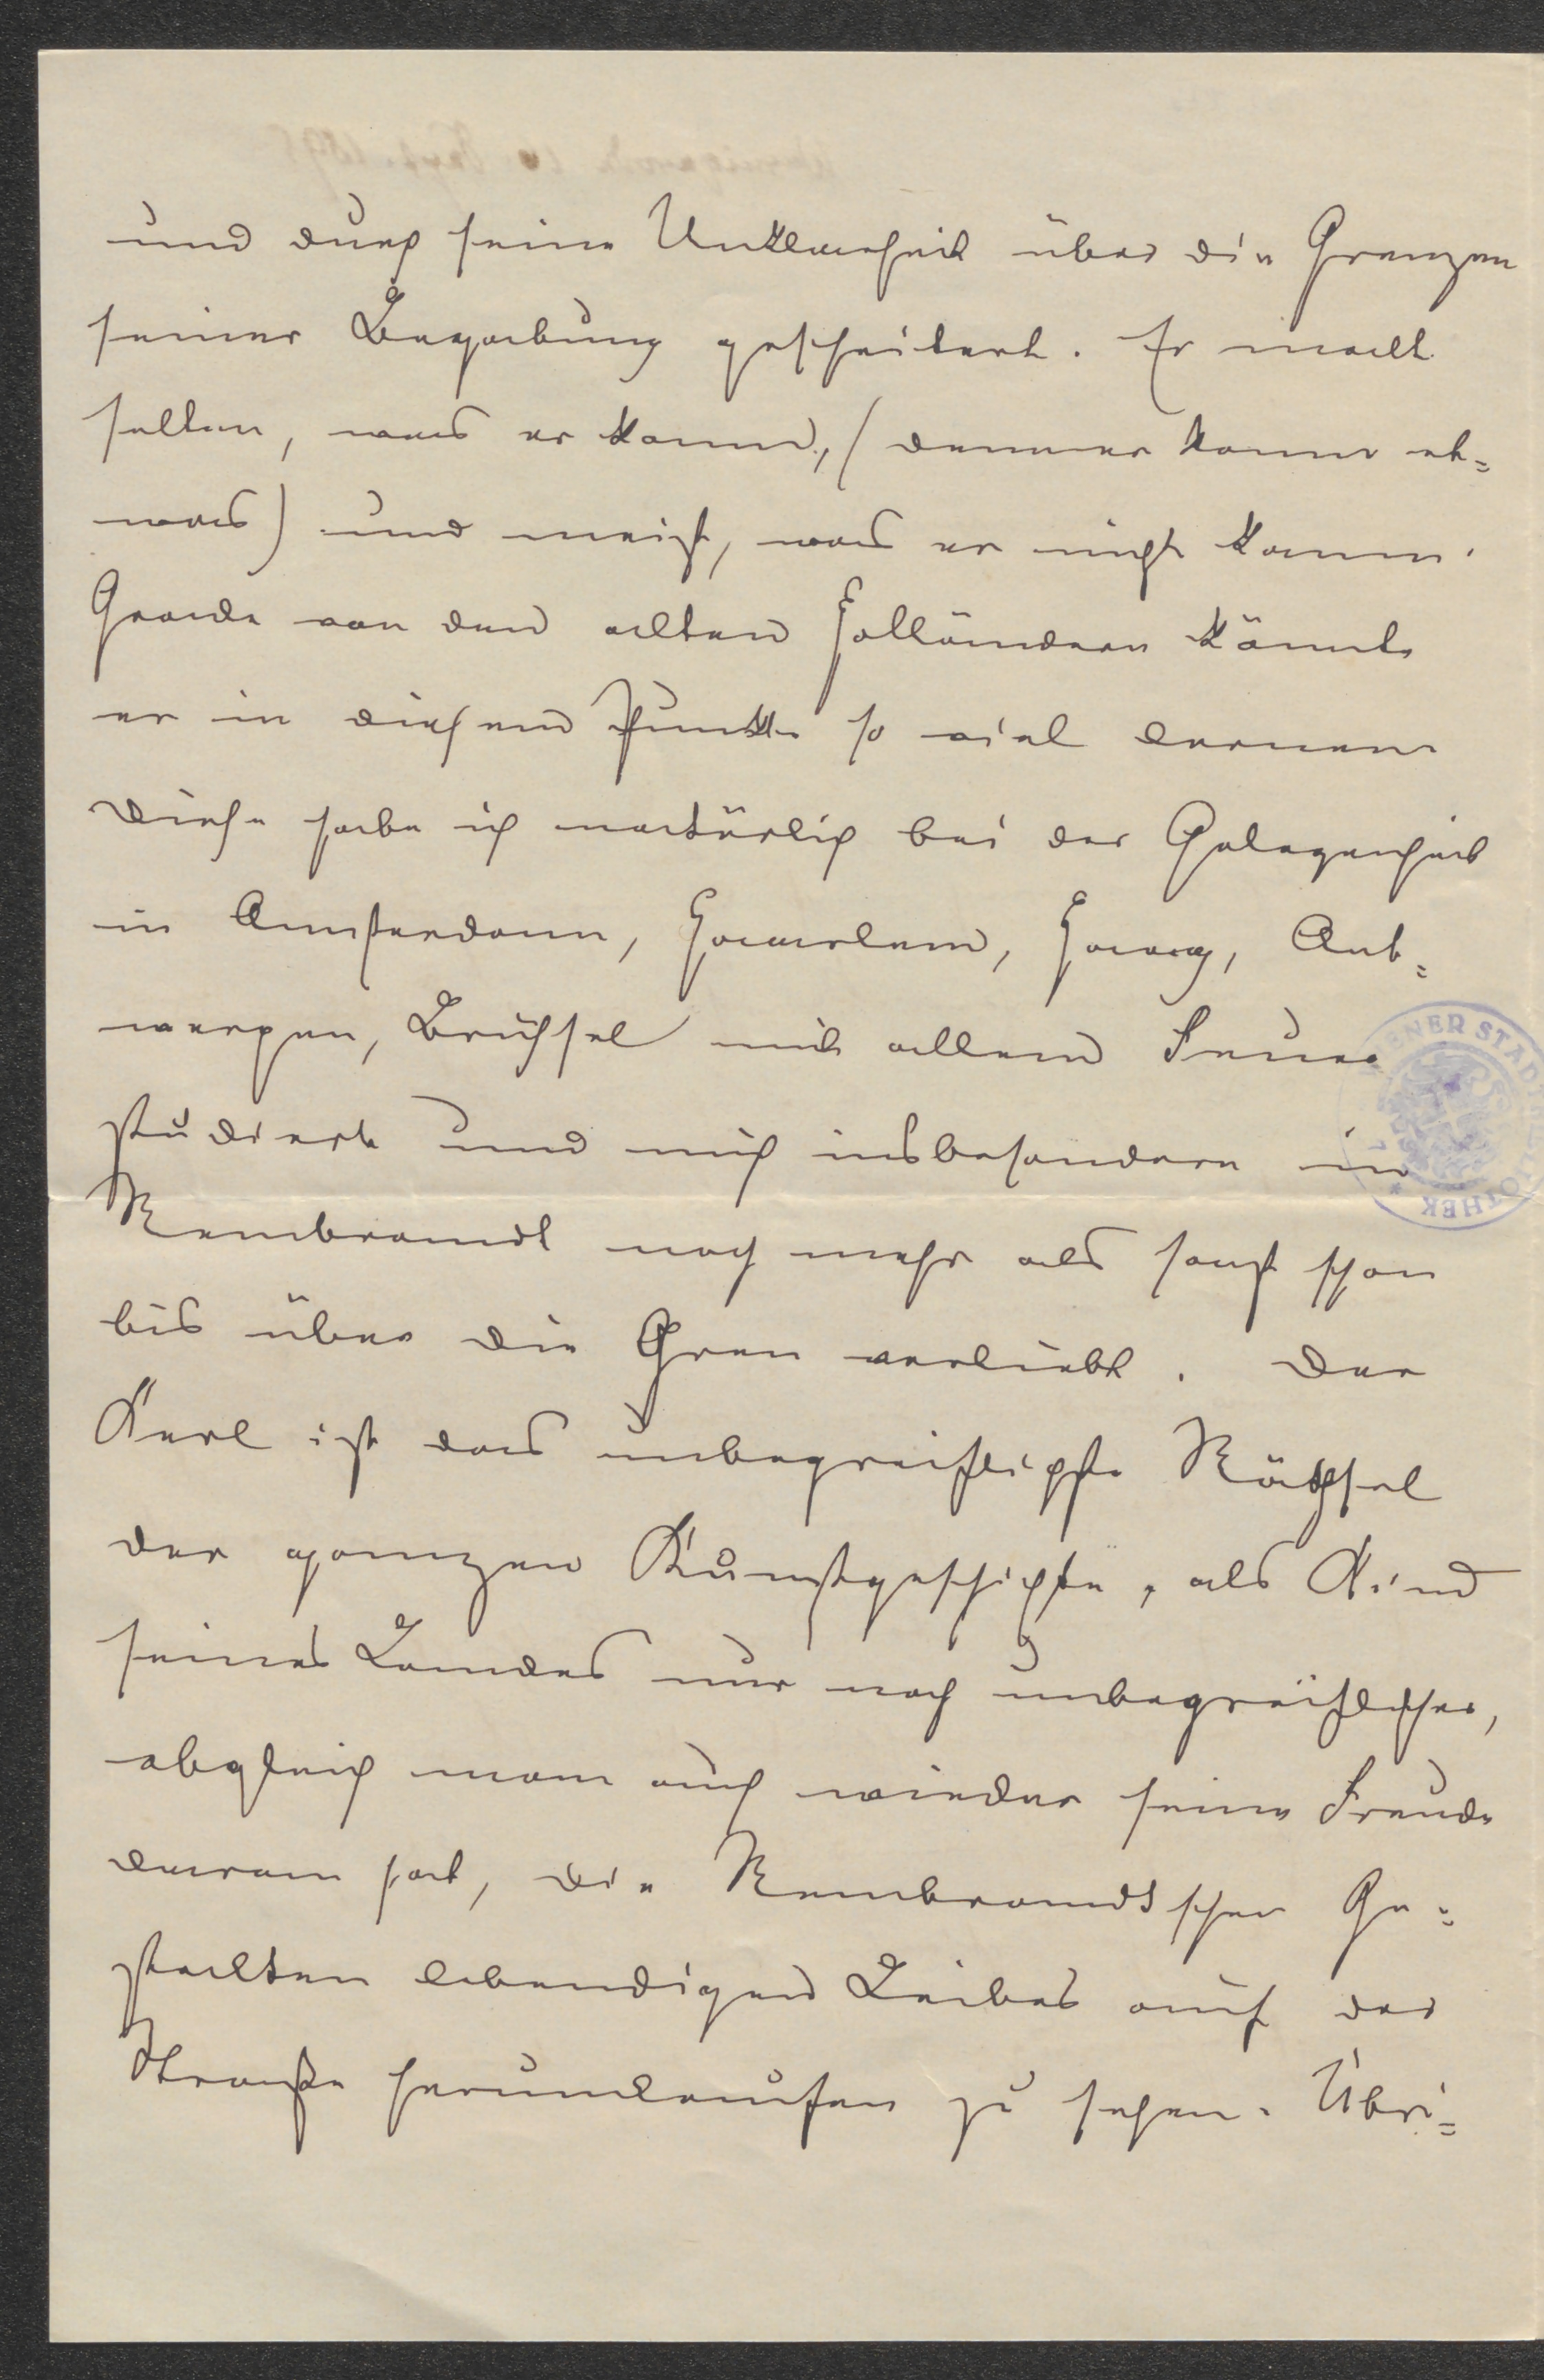 und durch seine Unklarheit über die Grenzen
seiner Begabung gescheitert. Er malt
selten, was er kann, (denn er kann et=
was) und meist, was er nicht kann.
Grade von den alten Holländern könnte
er in diesem Punkte so viel lernen
Diese habe ich natürlich bei der Gelegenheit
in Amsterdam, Haarlem, Haag, Ant=
werpen, Brüssel mit allem Feuer
studiert und mich insbesondere in
Rembrandt noch mehr als sonst schon
bis über die Ohren verliebt. Der
Kerl ist das unbegreiflichste Räthsel
der ganzen Kunstgeschichte, als Kind
seines Landes nur noch unbegreiflicher,
obgleich man auch wieder seine Freude
daran hat, die Rembrandtschen Ge=
stalten lebendigen Leibes auf der
Straße herumlaufen zu sehen. Übri=
WIENER STADTBIBLIOTHEK